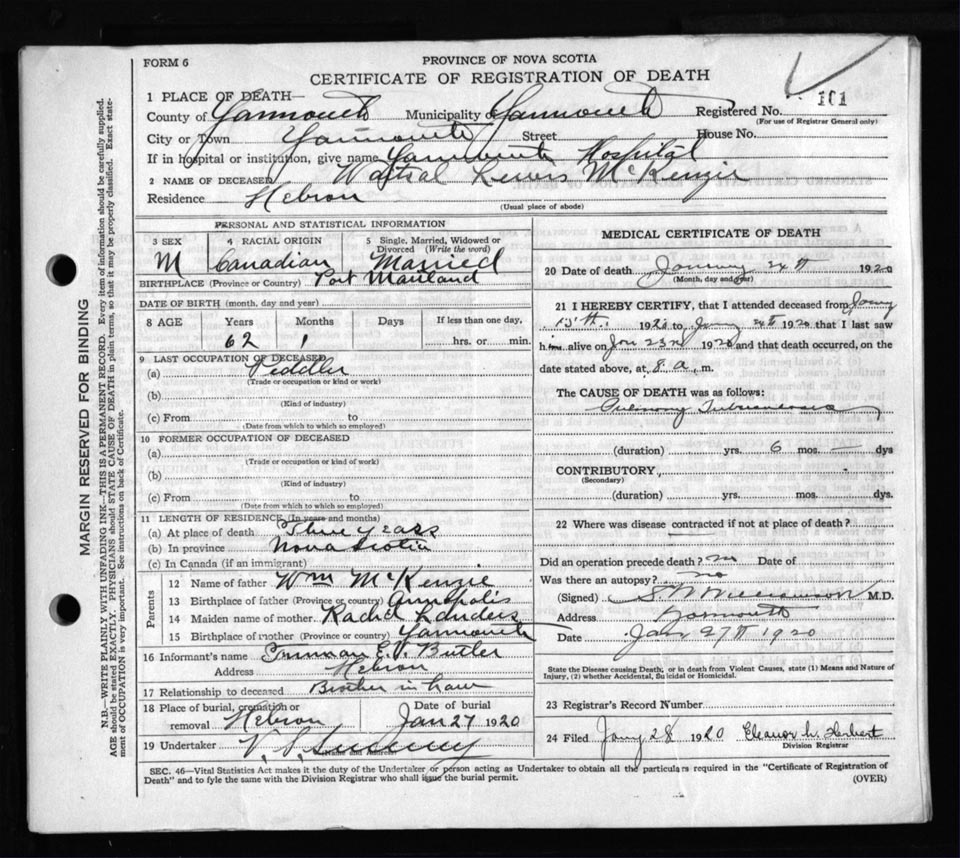 FORM 6
PROVINCE OF NOVA SCOTIA
CERTIFICATE OF REGISTRATION OF DEATH
1 PLACE OF DEATH—
County of Yarmouth Municipality of Yarmouth Registered No. 101
(For use of Registrar General only)
City or Town Yarmouth Street House No.
If in hospital or institution, give name Yarmouth Hospital
2 NAME OF DECEASED McKenzie
Residence Hebron
(Usual place of abode)
PERSONAL AND STATISTICAL INFORMATION
3 SEX 4 RACIAL ORIGIN 5 Single, Married, Widowed or
Divorced (Write the word)
M Canadian Married
BIRTHPLACE (Province or Country) Port Maitland
DATE OF BIRTH (month, day and year)
8 AGE Years Months Days If less than one day,
62 1 hrs. or min.
9 LAST OCCUPATION OF DECEASED
(a) Peddler
(Trade or occupation or kind of work)
(b)
(Kind of industry)
(c) From to
(Date from which to which so employed)
10 FORMER OCCUPATION OF DECEASED
(a)
(Trade or occupation or kind of work)
(b)
(Kind of industry)
(c) From to
(Date from which to which so employed)
11 LENGTH OF RESIDENCE (In years and months)
(a) At place of death Three years
(b) In province Nova Scotia
(c) In Canada (if an immigrant)
Parents
12 Name of father Wm McKenzie
13 Birthplace of father (Province or country) Annapolis
14 Maiden name of mother Rachel Landers
15 Birthplace of mother (Province or country) Yarmouth
16 Informant's name Truman E.V. Butler
Address Hebron
17 Relationship to deceased Brother in law
18 Place of burial, cremation or Date of burial
removal Hebron Jan 27 1920
19 Undertaker
(Name and Address)
MEDICAL CERTIFICATE OF DEATH
20 Date of death January 24th 1920
(Month, day and year)
21 I HEREBY CERTIFY, that I attended deceased from Jany
13th 1920 to Jany 24th 1920 that I last saw
him alive on Jan 23rd 1920 and that death occurred, on the
date stated above, at 8 a. m.
The CAUSE OF DEATH was as follows:
Pulmonary Tuberculosis
(duration) yrs. 6 mos. — dys
CONTRIBUTORY
(Secondary)
(duration) yrs. mos. dys.
22 Where was disease contracted if not at place of death?
Did an operation precede death? no Date of
Was there an autopsy? no
(Signed) Williamson M.D.
Address Yarmouth
Date Jan 27th 1920
State the Disease causing Death, or in death from Violent Causes, state (1) Means and Nature of
Injury, (2) whether Accidental, Suicidal or Homicidal.
23 Registrar's Record Number
24 Filed Jany 28 1920 Eleanor W. Herbert
Division Registrar
SEC. 46—Vital Statistics Act makes it the duty of the Undertaker or person acting as Undertaker to obtain all the particulars required in the "Certificate of Registration of
Death" and to fyle the same with the Division Registrar who shall issue the burial permit. (OVER)
MARGIN RESERVED FOR BINDING
N.B.—WRITE PLAINLY WITH UNFADING INK—THIS IS A PERMANENT RECORD. Every item of information should be carefully supplied.
AGE should be stated EXACTLY. PHYSICIANS should STATE CAUSE OF DEATH in plain terms, so that it may be properly classified. Exact state-
ment of OCCUPATION is very important. See instructions on back of Certificate.